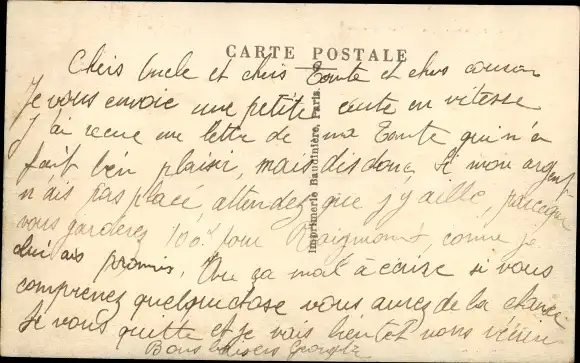 CARTE POSTALE
Chers Oncle et chers Tente et chers cousin
Je vous envoie une petite carte en vitesse
J'ai recue une lettre de ma Tente qui m'a
fait bien plaisir, mais dis donc, si mon argent
n'ais pas placé attendez que j'y aille, parceque
vous garderez 100.s pour Raymond, comme je
lui ais promis. Vue ça mal à écrire si vous
comprenez quelquechose vous aurez de la chance
Je vous quitte et je vais bientôt vous revenir
Bons baisers Georgette
Imprimerie Baudinière, Paris.